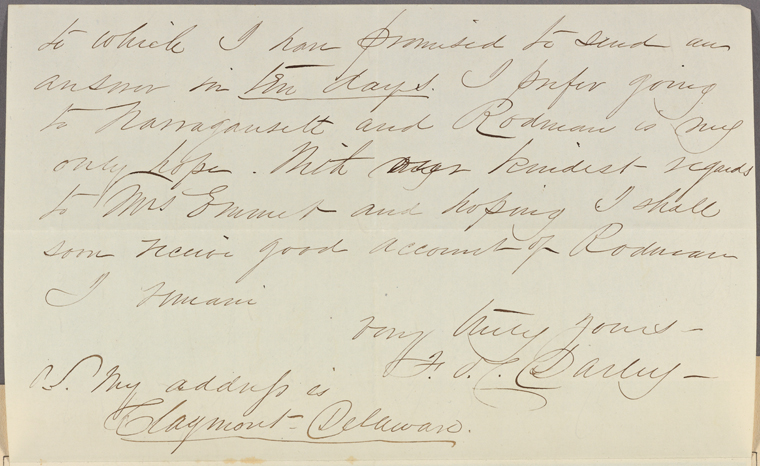 to which I have promised to send an
answer in ten days. I prefer going
to Narragansett and Rodman is my
only hope. With our kindest regards
to Mrs Emmet and hoping I shall
soon receive good account of Rodman
I remain
very truly yours—
F. O. C. Darley—
P.S. My address is
Claymont—Delaware.